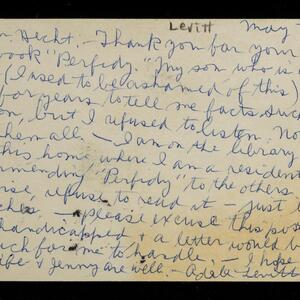 Levitt
May
Hecht. — Thank you for your
book "Perfidy." My son who is
(I used to be ashamed of this)
for years to tell me facts such
on, but I refused to listen. No
them all. — I am on the library
this home where I am a resident
mending "Perfidy" to the others
refuse to read it — just
— please excuse this pos
handicapped & a letter would b
uch for me to handle. — I hope
ife & Jenny are well. — Adele Levitt